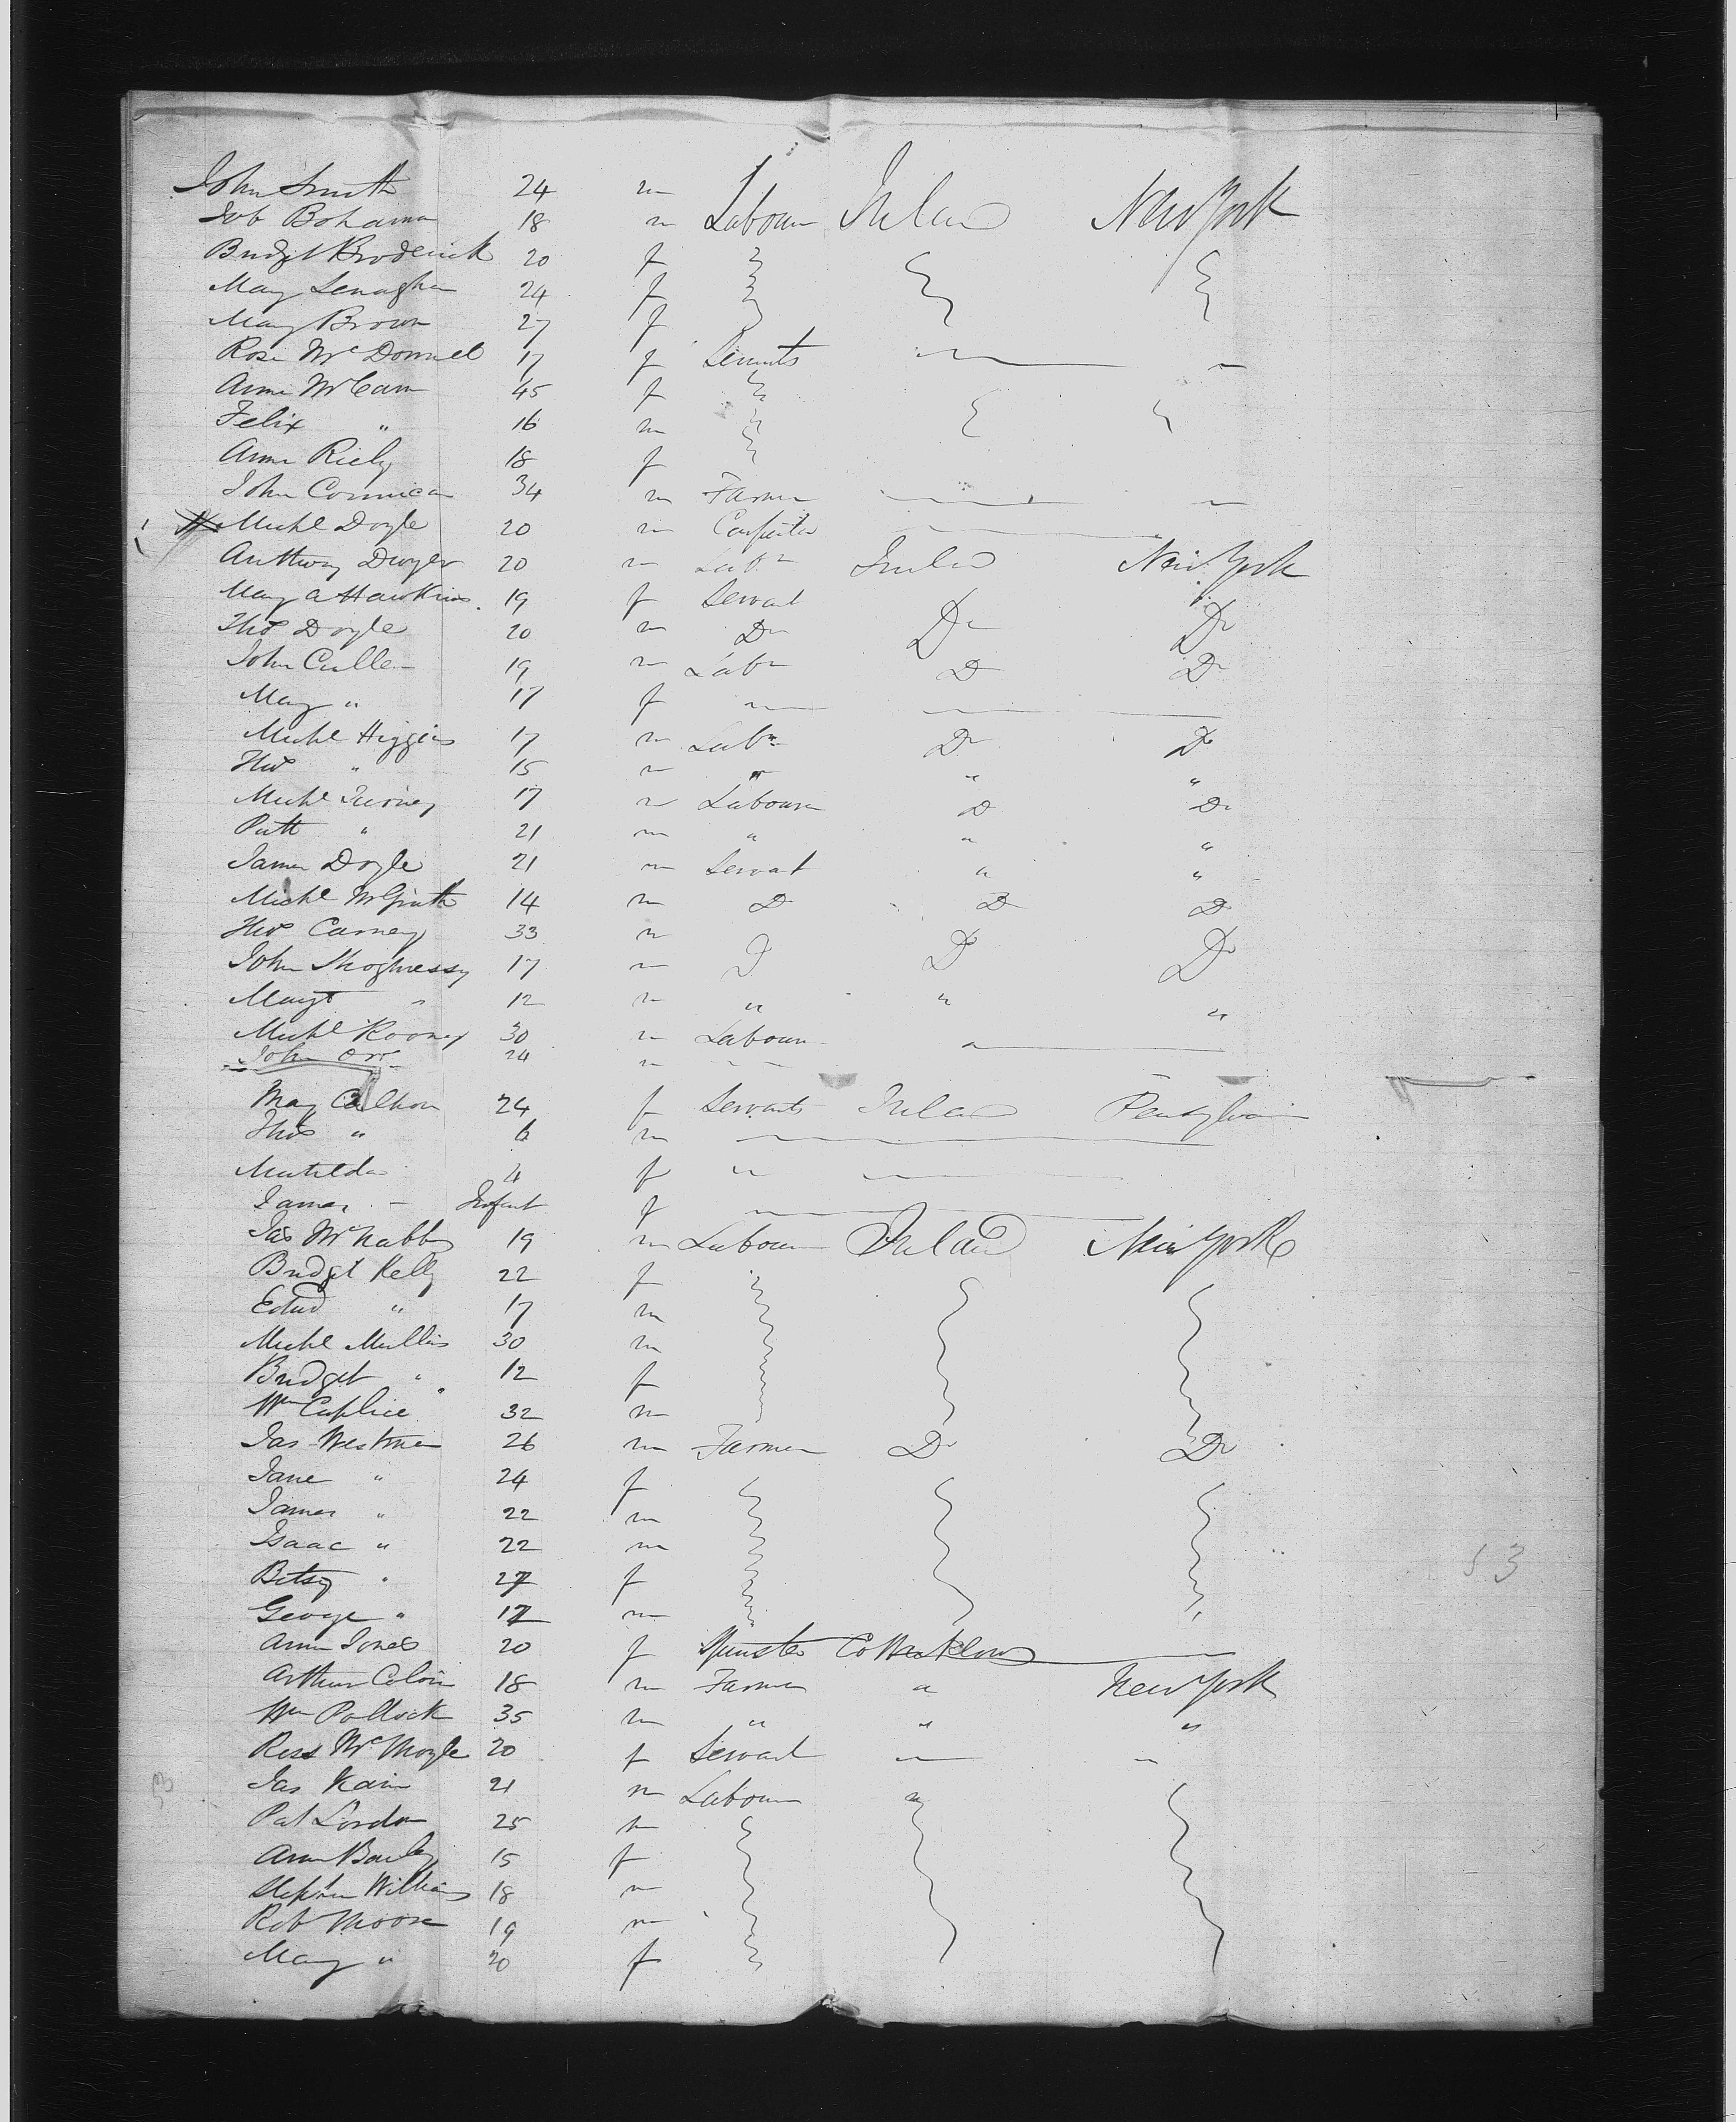 John Smith 24 m
Job Bohanna 18 m Labour Ireland New York
Bridget Broderick 20 f
Mary Lenaghan 24 f
Mary Brown 27 f
Rose McDonnell 17 f Servants
Anne McCann 45 f
Felix " 16 m
Anne Riely 18 f
John Cormican 34 m Farmer
Michl Doyle 20 m Carpenter
Anthony Dwyer 20 m Labr Ireland New York
Mary A Hawkins 19 f Servant
Thos Doyle 20 m Do Do Do
John Cullen 19 m Labr Do Do
Mary " 17 f
Michl Higgins 17 m Labr Do Do
Thos " 15 m " " "
Michl 17 m Labourer Do Do
Patt " 21 m " " "
James Doyle 21 m Servant " "
Michl McGrath 14 m Do Do Do
Thos Carney 33 m Do Do Do
John Shoghnessy 17 m
Margt " 12 m " " "
Michl Rooney 30 m Labour
John Orr 24 m
Mary Calhoun 24 f Servants Ireland Penssylvania
Thos " 6 m
Matilda 4 f "
James Infant f
Jas McNabb 19 m Labour Ireland New York
Bridget Kelly 22 f
Edwd " 17 m
Michl Mullins 30 m
Bridget " 12 f
Wm Caplice 32 m
Jas Westman 26 m Farmer Do Do
Jane " 24 f
James " 22 m
Isaac " 22 m
Betsy " 27 f
George " 17 m
Ann Jones 20 f Spinster Co Wicklow
Arthur Colvin 18 m Farmer " New York
Wm Pollock 35 m " " "
Ross McMoyle 20 f Servant
Jas Kain 21 m Labour "
Pat Lordon 25 m
Ann Bailey 15 f
Stephen Williams 18 m
Rob Moore 19 m
Mary " 20 f
53